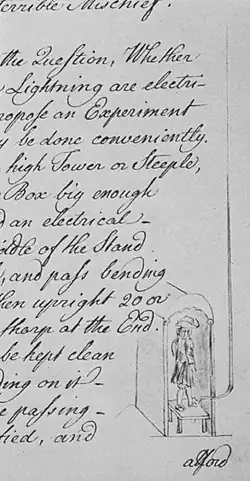 terrible Mischief.
the Question, Whether
Lightning are electri-
ropose an Experiment
y be done conveniently.
high Tower or Steeple,
Box big enough
d an electrical-
iddle of the Stand
, and pass bending
hen upright 20 or
sharp at the End.
be kept clean
ding on it-
e passing-
tied, and
afford